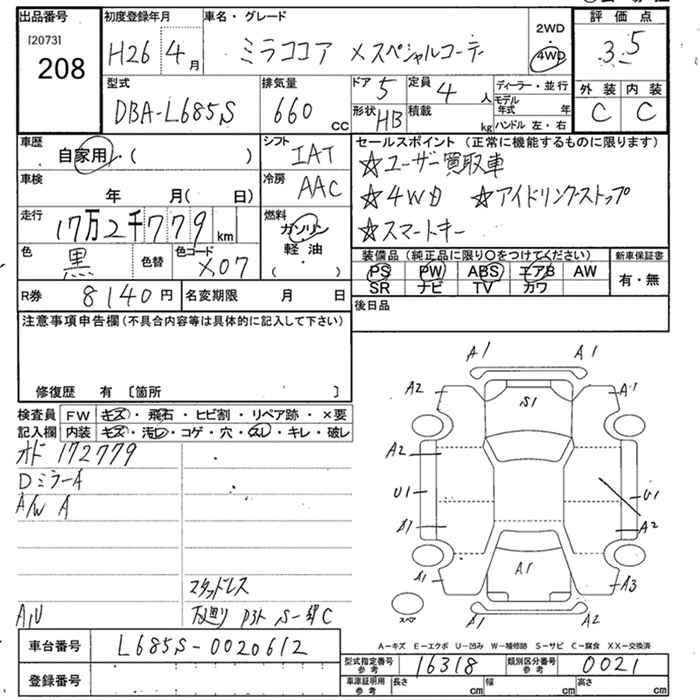 出品番号
[2073]
208
初度登録年月
H26 4月
車名・グレード
ミラココア Xスペシャルコーデ
2WD
・
4WD
評価点
3.5
外装 内装
C C
型式
DBA-L685S
排気量
660 cc
ドア 5
定員 4 人
形状 HB
積載 kg
ディーラー・並行
モデル年式 年
ハンドル 左・右
車歴
自家用 ( )
シフト
IAT
車検
年 月( 日)
冷房
AAC
走行
17万2千779 km
燃料
ガソリン
軽油
・
( )
色
黒
色替
色コード
X07
R券 8140円
名変期限 月 日
セールスポイント (正常に機能するものに限ります)
☆ユーザー買取車
☆4WD ☆アイドリングストップ
☆スマートキー
装備品 (純正品に限り○をつけてください)
新車保証書
PS PW ABS エアB AW
SR ナビ TV カワ
有・無
後日品
注意事項申告欄(不具合内容等は具体的に記入して下さい)
修復歴 有 〔箇所 〕
検査員 FW キズ・飛石・ヒビ割・リペア跡・×要
記入欄 内装 キズ・汚レ・コゲ・穴・スレ・キレ・破レ
オド 172779
DミラーA
A/W A
スタッドレス
A/U
下廻り S-部C
A1 A1
A2 A1
S1
A2
U1 U1
A1 A2
A1 A1 A3
S1 A2
スペア
A-キズ E-エクボ U-凹み W-補修跡 S-サビ C-腐食 XX-交換済
車台番号 L685S-0020612
登録番号
型式指定番号
参考
16318
類別区分番号
参考
0021
車庫証明用
参考
長さ cm 幅 cm 高さ cm